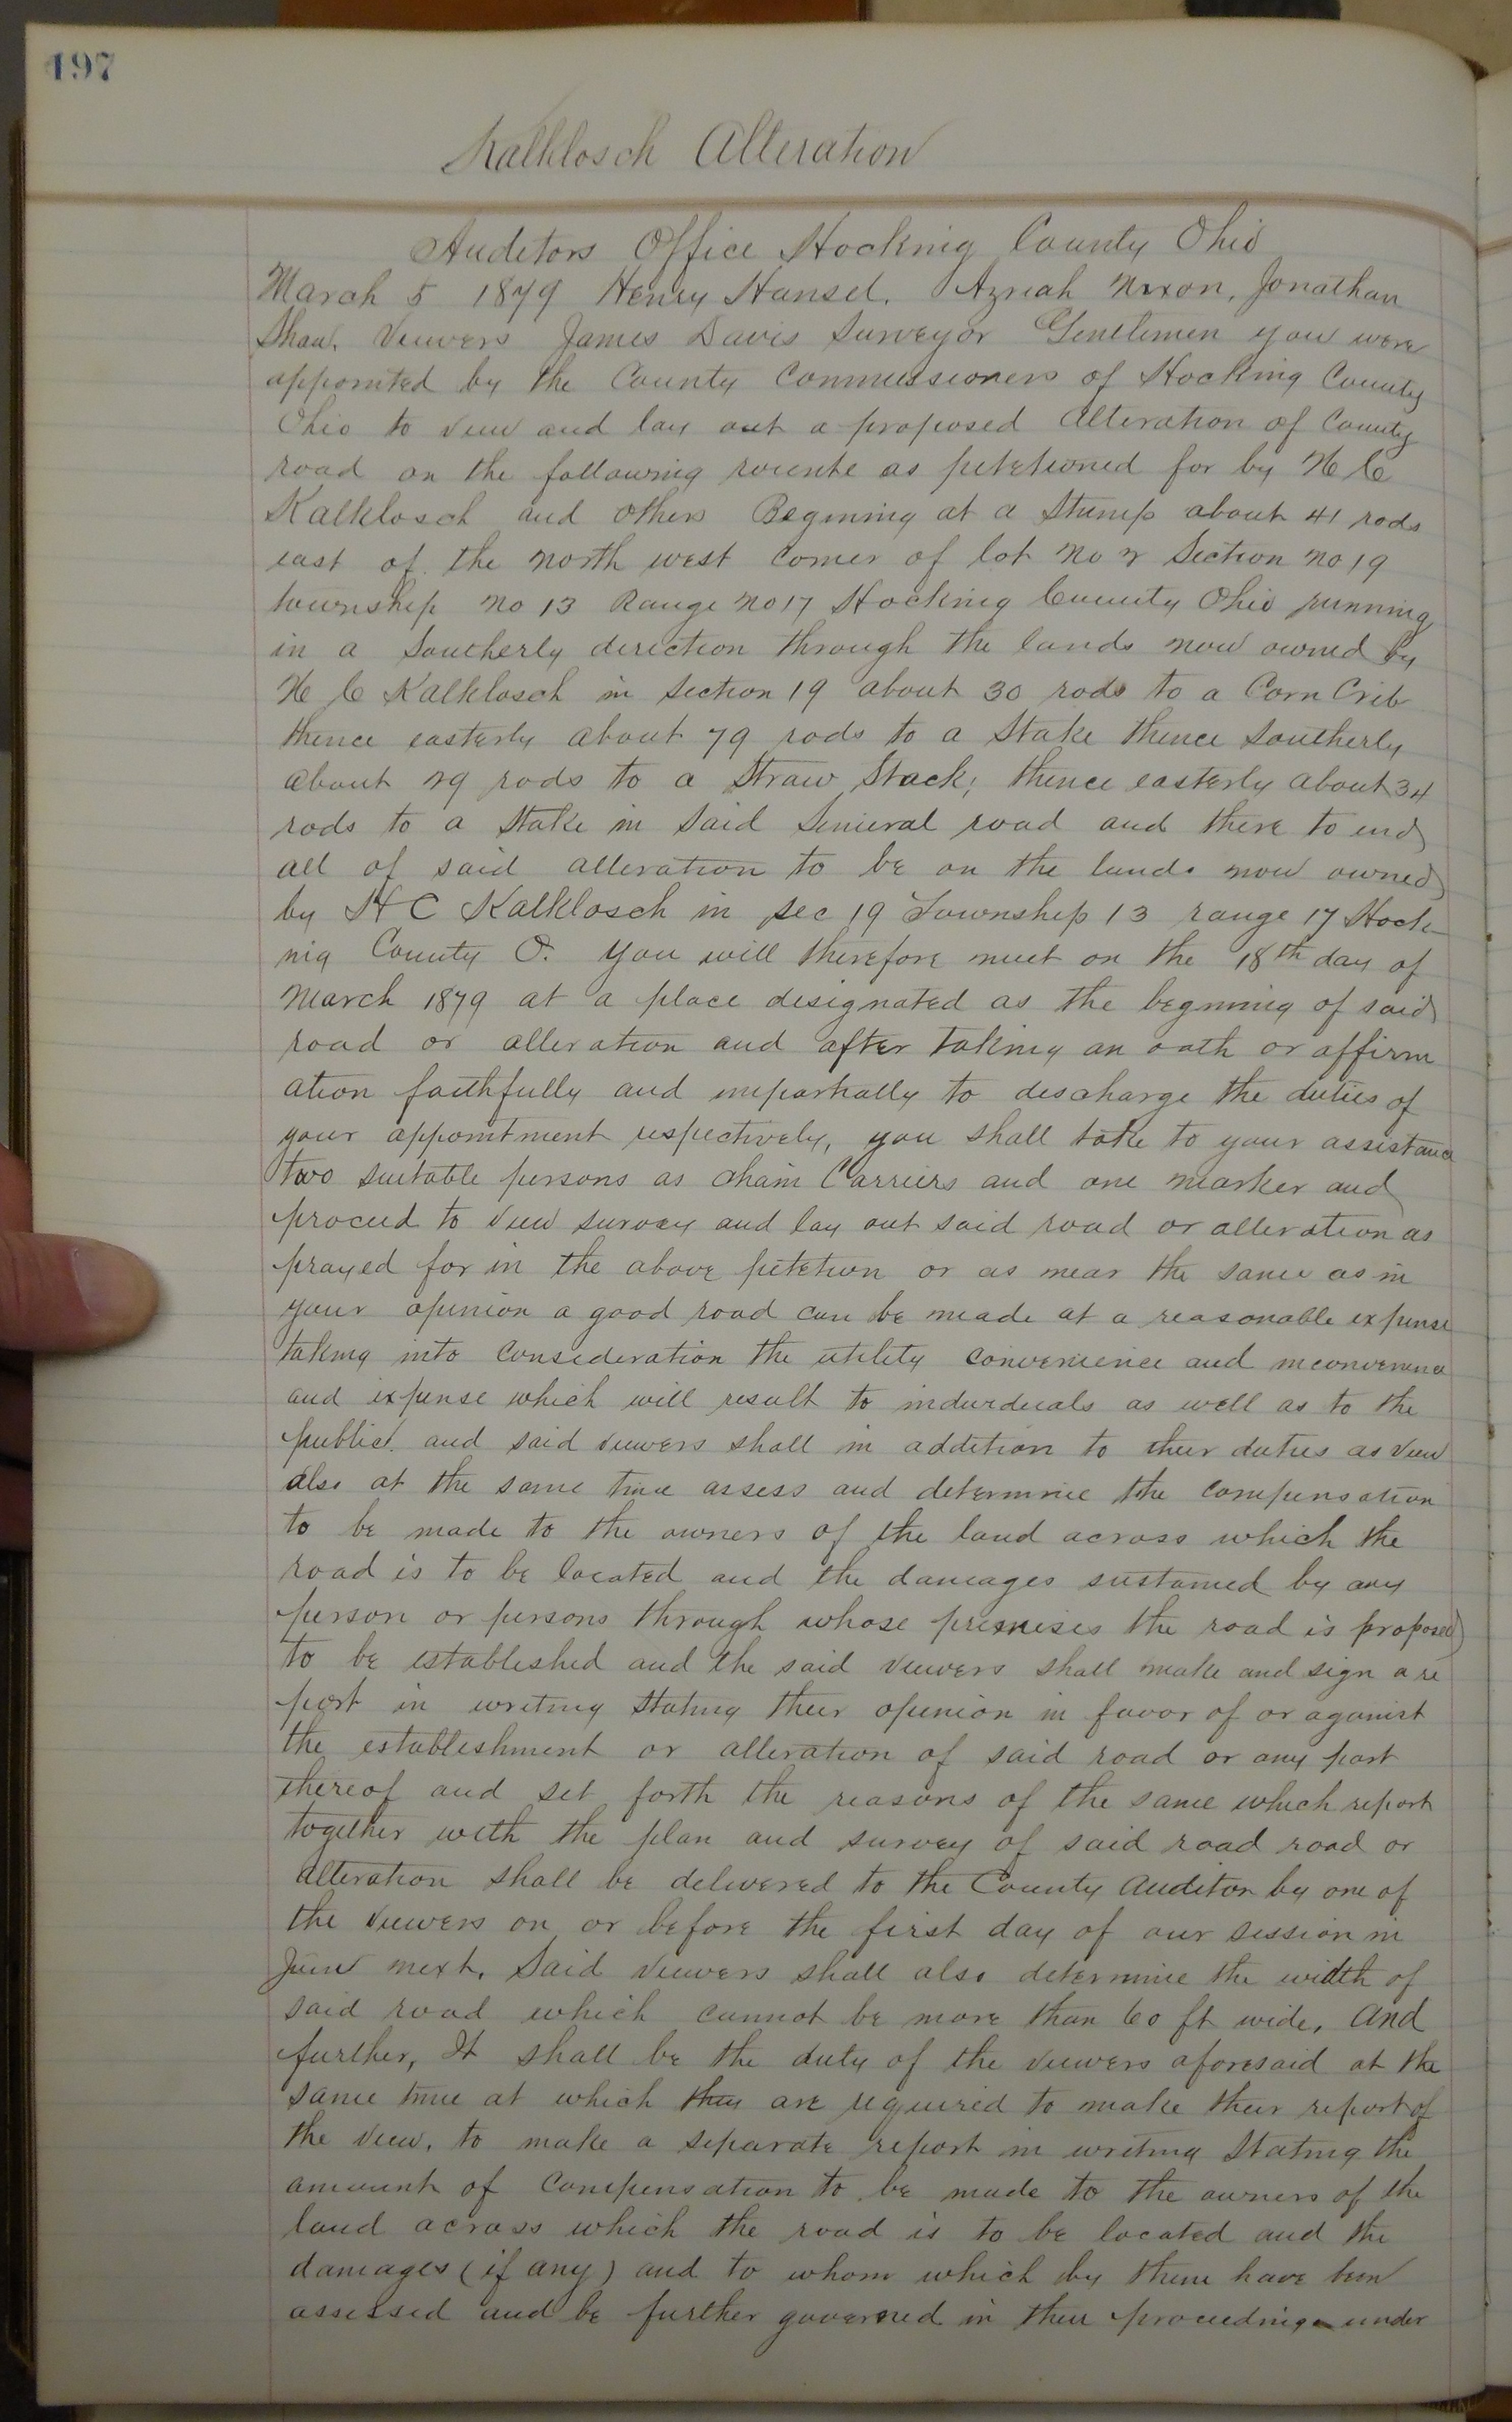 197
Kalklosch Alteration
Auditors Office Hocking County Ohio
March 5 1879 Henry Hansel, Azriah Nixon, Jonathan
Shaw, Viewers James Davis Surveyor Gentlemen you were
appointed by the County Commissioners of Hocking County
Ohio to view and lay out a proposed Alteration of County
road on the following rounte as petetioned for by H C
Kalklosch and others Begining at a Stump about 41 rods
east of the north west corner of lot No 2 Section No 19
township No 13 Range No 17 Hocking County Ohio running
in a Southerly direction through the lands now owned by
H C Kalklosch in Section 19 about 30 rods to a Corn Crib
thence easterly about 79 rods to a Stake thence Southerly
about 29 rods to a Straw Stack; thence easterly about 34
rods to a Stake in Said road and there to end
all of said alteration to be on the lands now owned
by H C Kalklosch in sec 19 Township 13 range 17 Hock-
ing County O. You will therefore meet on the 18th day of
March 1879 at a place designated as the begining of said
road or alteration and after taking an oath or affirm
ation faithfully and impartially to discharge the duties of
your appointment respectively, you shall take to your assistance
two suitable persons as chain Carriers and one marker and
proceed to view survey and lay out said road or alteration as
prayed for in the above petetion or as near the same as in
your opinion a good road can be made at a reasonable expense
taking into consideration the utility convenience and inconvenience
and expense which will result to individuals as well as to the
public. and said viewers shall in addition to their duties as view
also at the same time assess and determine the compensation
to be made to the owners of the land across which the
road is to be located and the damages sustained by any
person or persons through whose premises the road is proposed
to be established and the said viewers shall make and sign a re
port in writing stating their opinion in favor of or against
the establishment or alteration of said road or any part
thereof and set forth the reasons of the same which report
together with the plan and survey of said road road or
alteration shall be delivered to the County Auditor by one of
the viewers on or before the first day of our session in
June next. Said viewers shall also determine the width of
said road which cannot be more than 60 ft wide, and
further, It shall be the duty of the viewers aforesaid at the
same time at which they are required to make their report of
the view, to make a separate report in writing Stating the
amount of compensation to be made to the owners of the
land across which the road is to be located and the
damages (if any) and to whom which by them have been
assessed and be further governed in their proceedings under